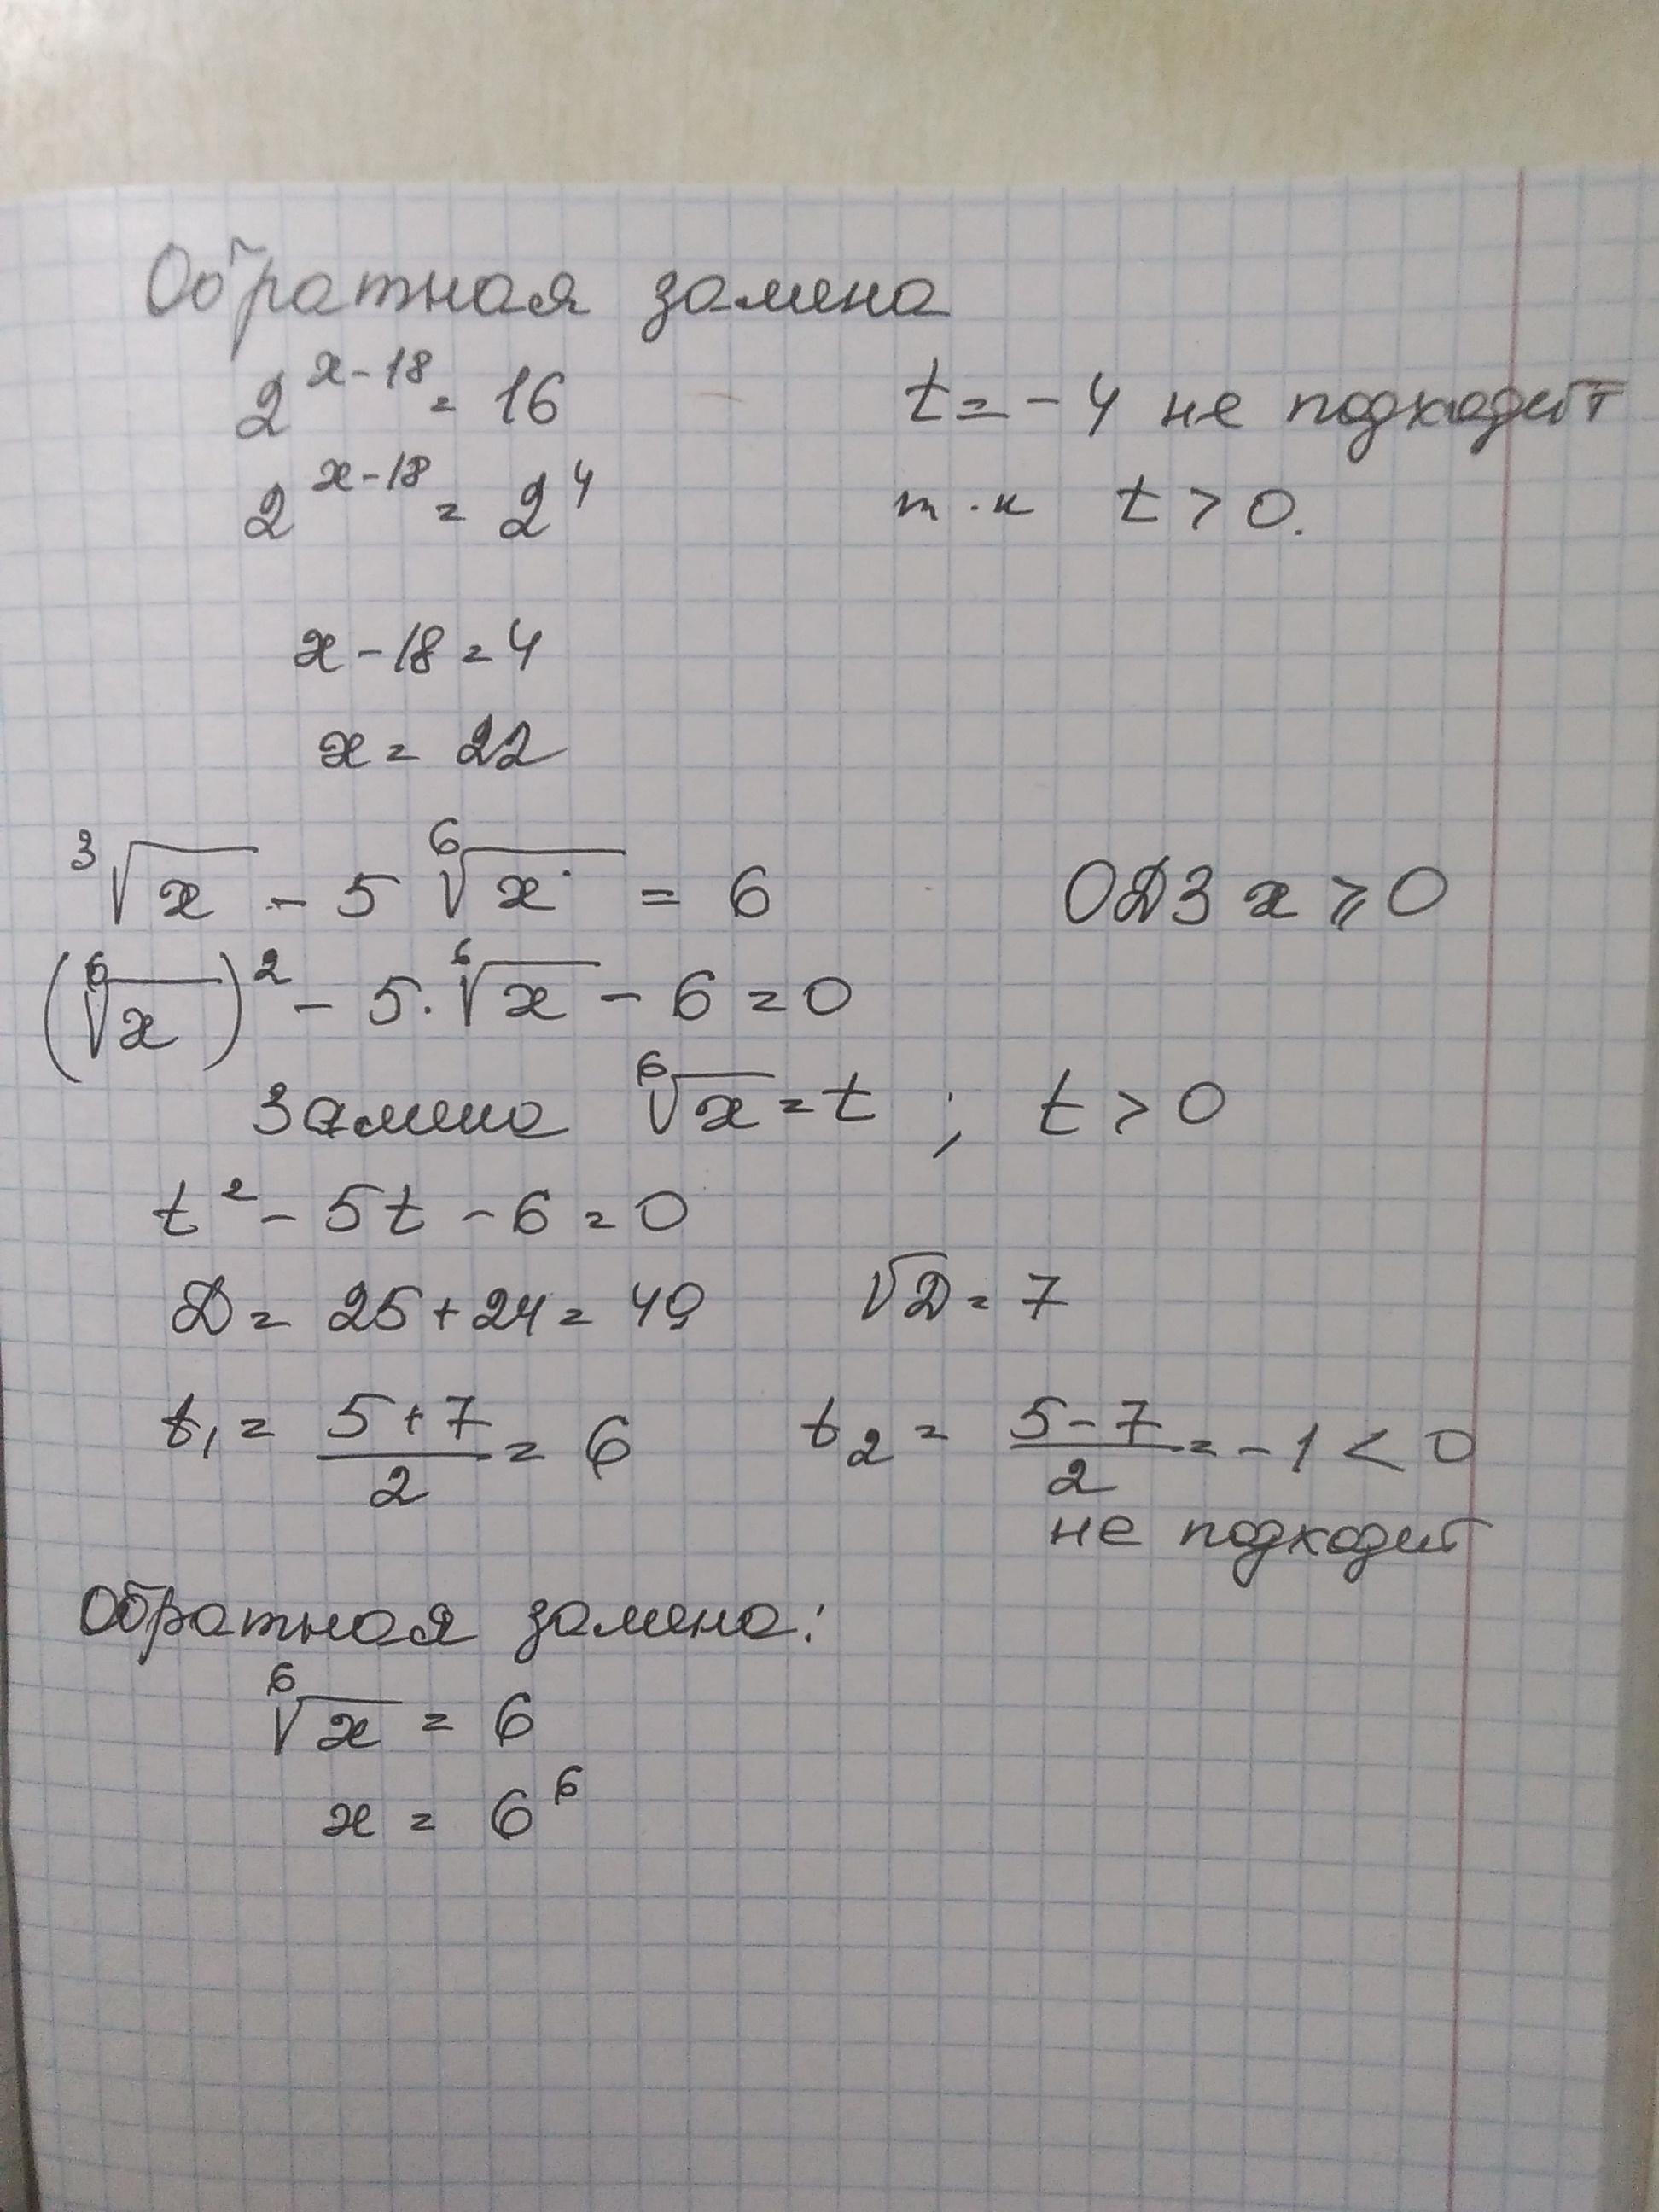 Обратная замена
2^{x-18} = 16 t = -4 не подходит
2^{x-18} = 2^4 т.к t > 0.
x - 18 = 4
x = 22
∛x - 5 ⁶√x = 6 ОДЗ x ⩾ 0
(⁶√x)² - 5·⁶√x - 6 = 0
Замена ⁶√x = t ; t > 0
t² - 5t - 6 = 0
D = 25 + 24 = 49 √D = 7
t₁ = (5+7)/2 = 6 t₂ = (5-7)/2 = -1 < 0
не подходит
Обратная замена:
⁶√x = 6
x = 6⁶